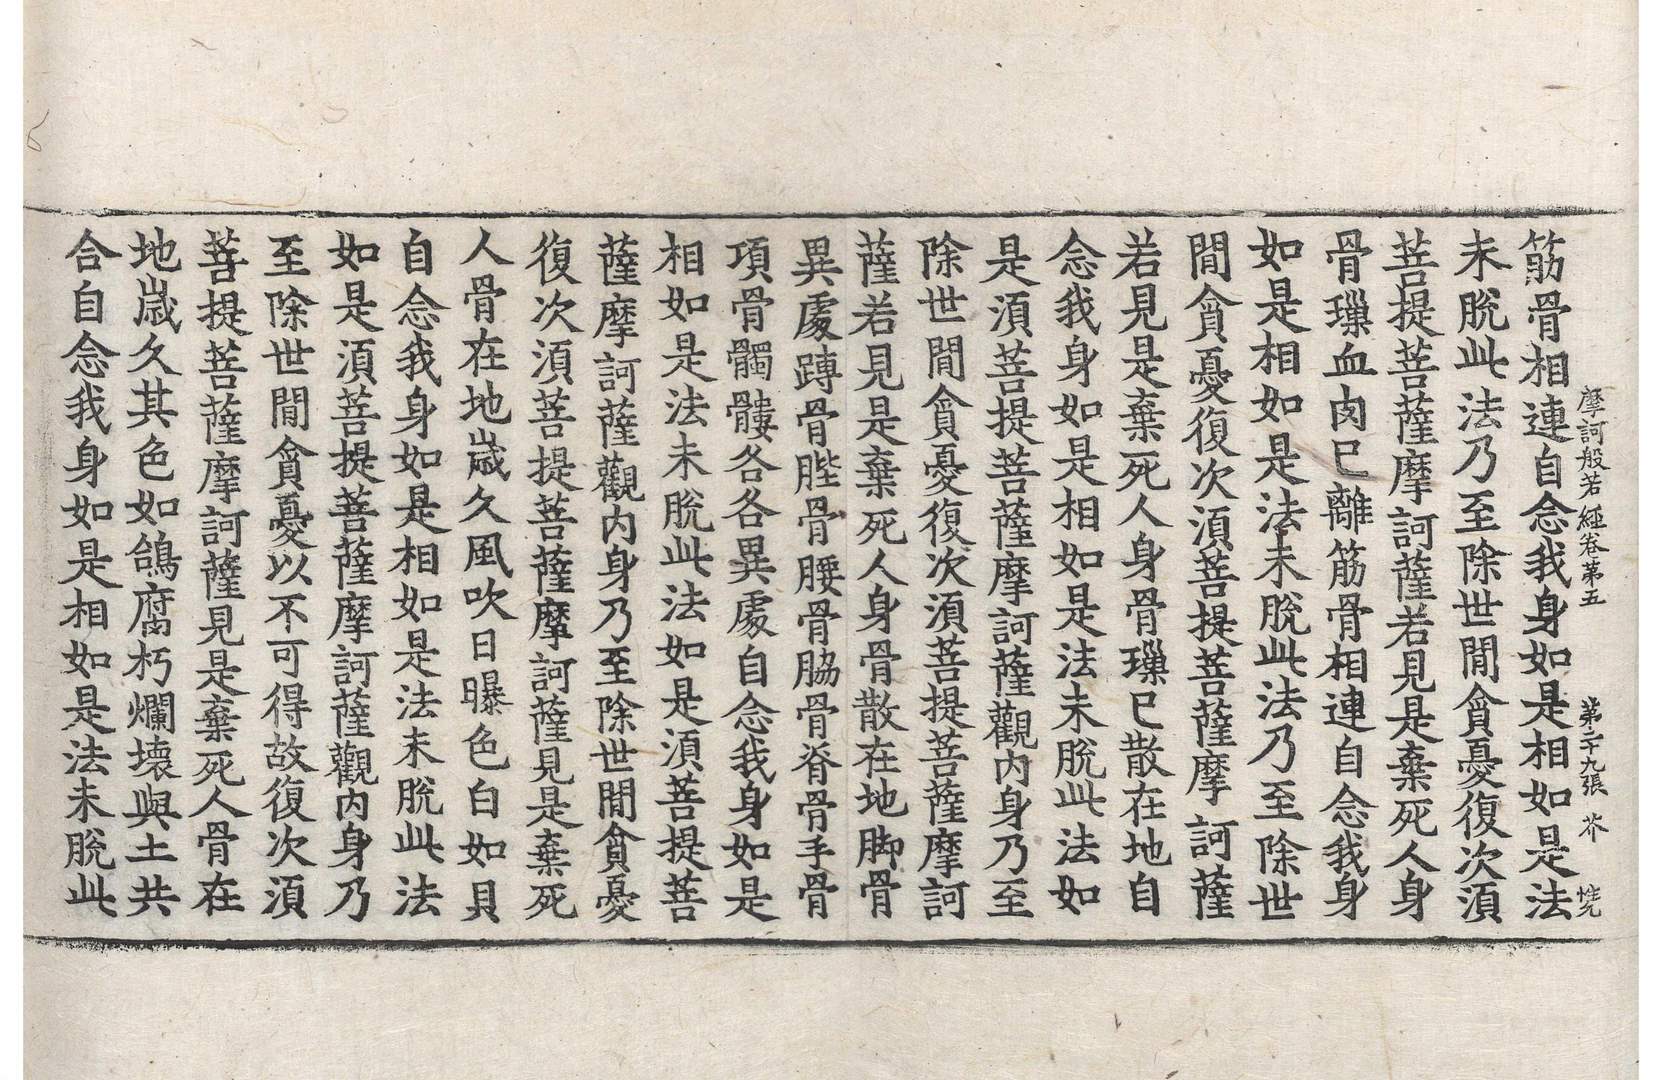 摩訶般若經卷第五　第二十九張　芥　惟
筋骨相連自念我身如是相如是法
未脫此法乃至除世間貪憂復次須
菩提菩薩摩訶薩若見是棄死人身
骨璅血肉已離筋骨相連自念我身
如是相如是法未脫此法乃至除世
間貪憂復次須菩提菩薩摩訶薩
若見是棄死人身骨璅已散在地自
念我身如是相如是法未脫此法如
是須菩提菩薩摩訶薩觀內身乃至
除世間貪憂復次須菩提菩薩摩訶
薩若見是棄死人身骨散在地脚骨
異處蹲骨䏶骨腰骨脇骨脊骨手骨
項骨髑髏各各異處自念我身如是
相如是法未脫此法如是須菩提菩
薩摩訶薩觀內身乃至除世間貪憂
復次須菩提菩薩摩訶薩見是棄死
人骨在地歲久風吹日曝色白如貝
自念我身如是相如是法未脫此法
如是須菩提菩薩摩訶薩觀內身乃
至除世間貪憂以不可得故復次須
菩提菩薩摩訶薩見是棄死人骨在
地歲久其色如鴿腐朽爛壞與土共
合自念我身如是相如是法未脫此